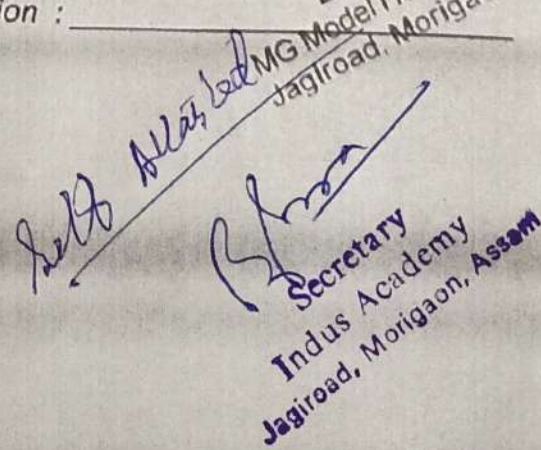 ion :
MG Model
Jagiroad, Moriga
Self Attested
Secretary
Indus Academy
Jagiroad, Morigaon, Assam